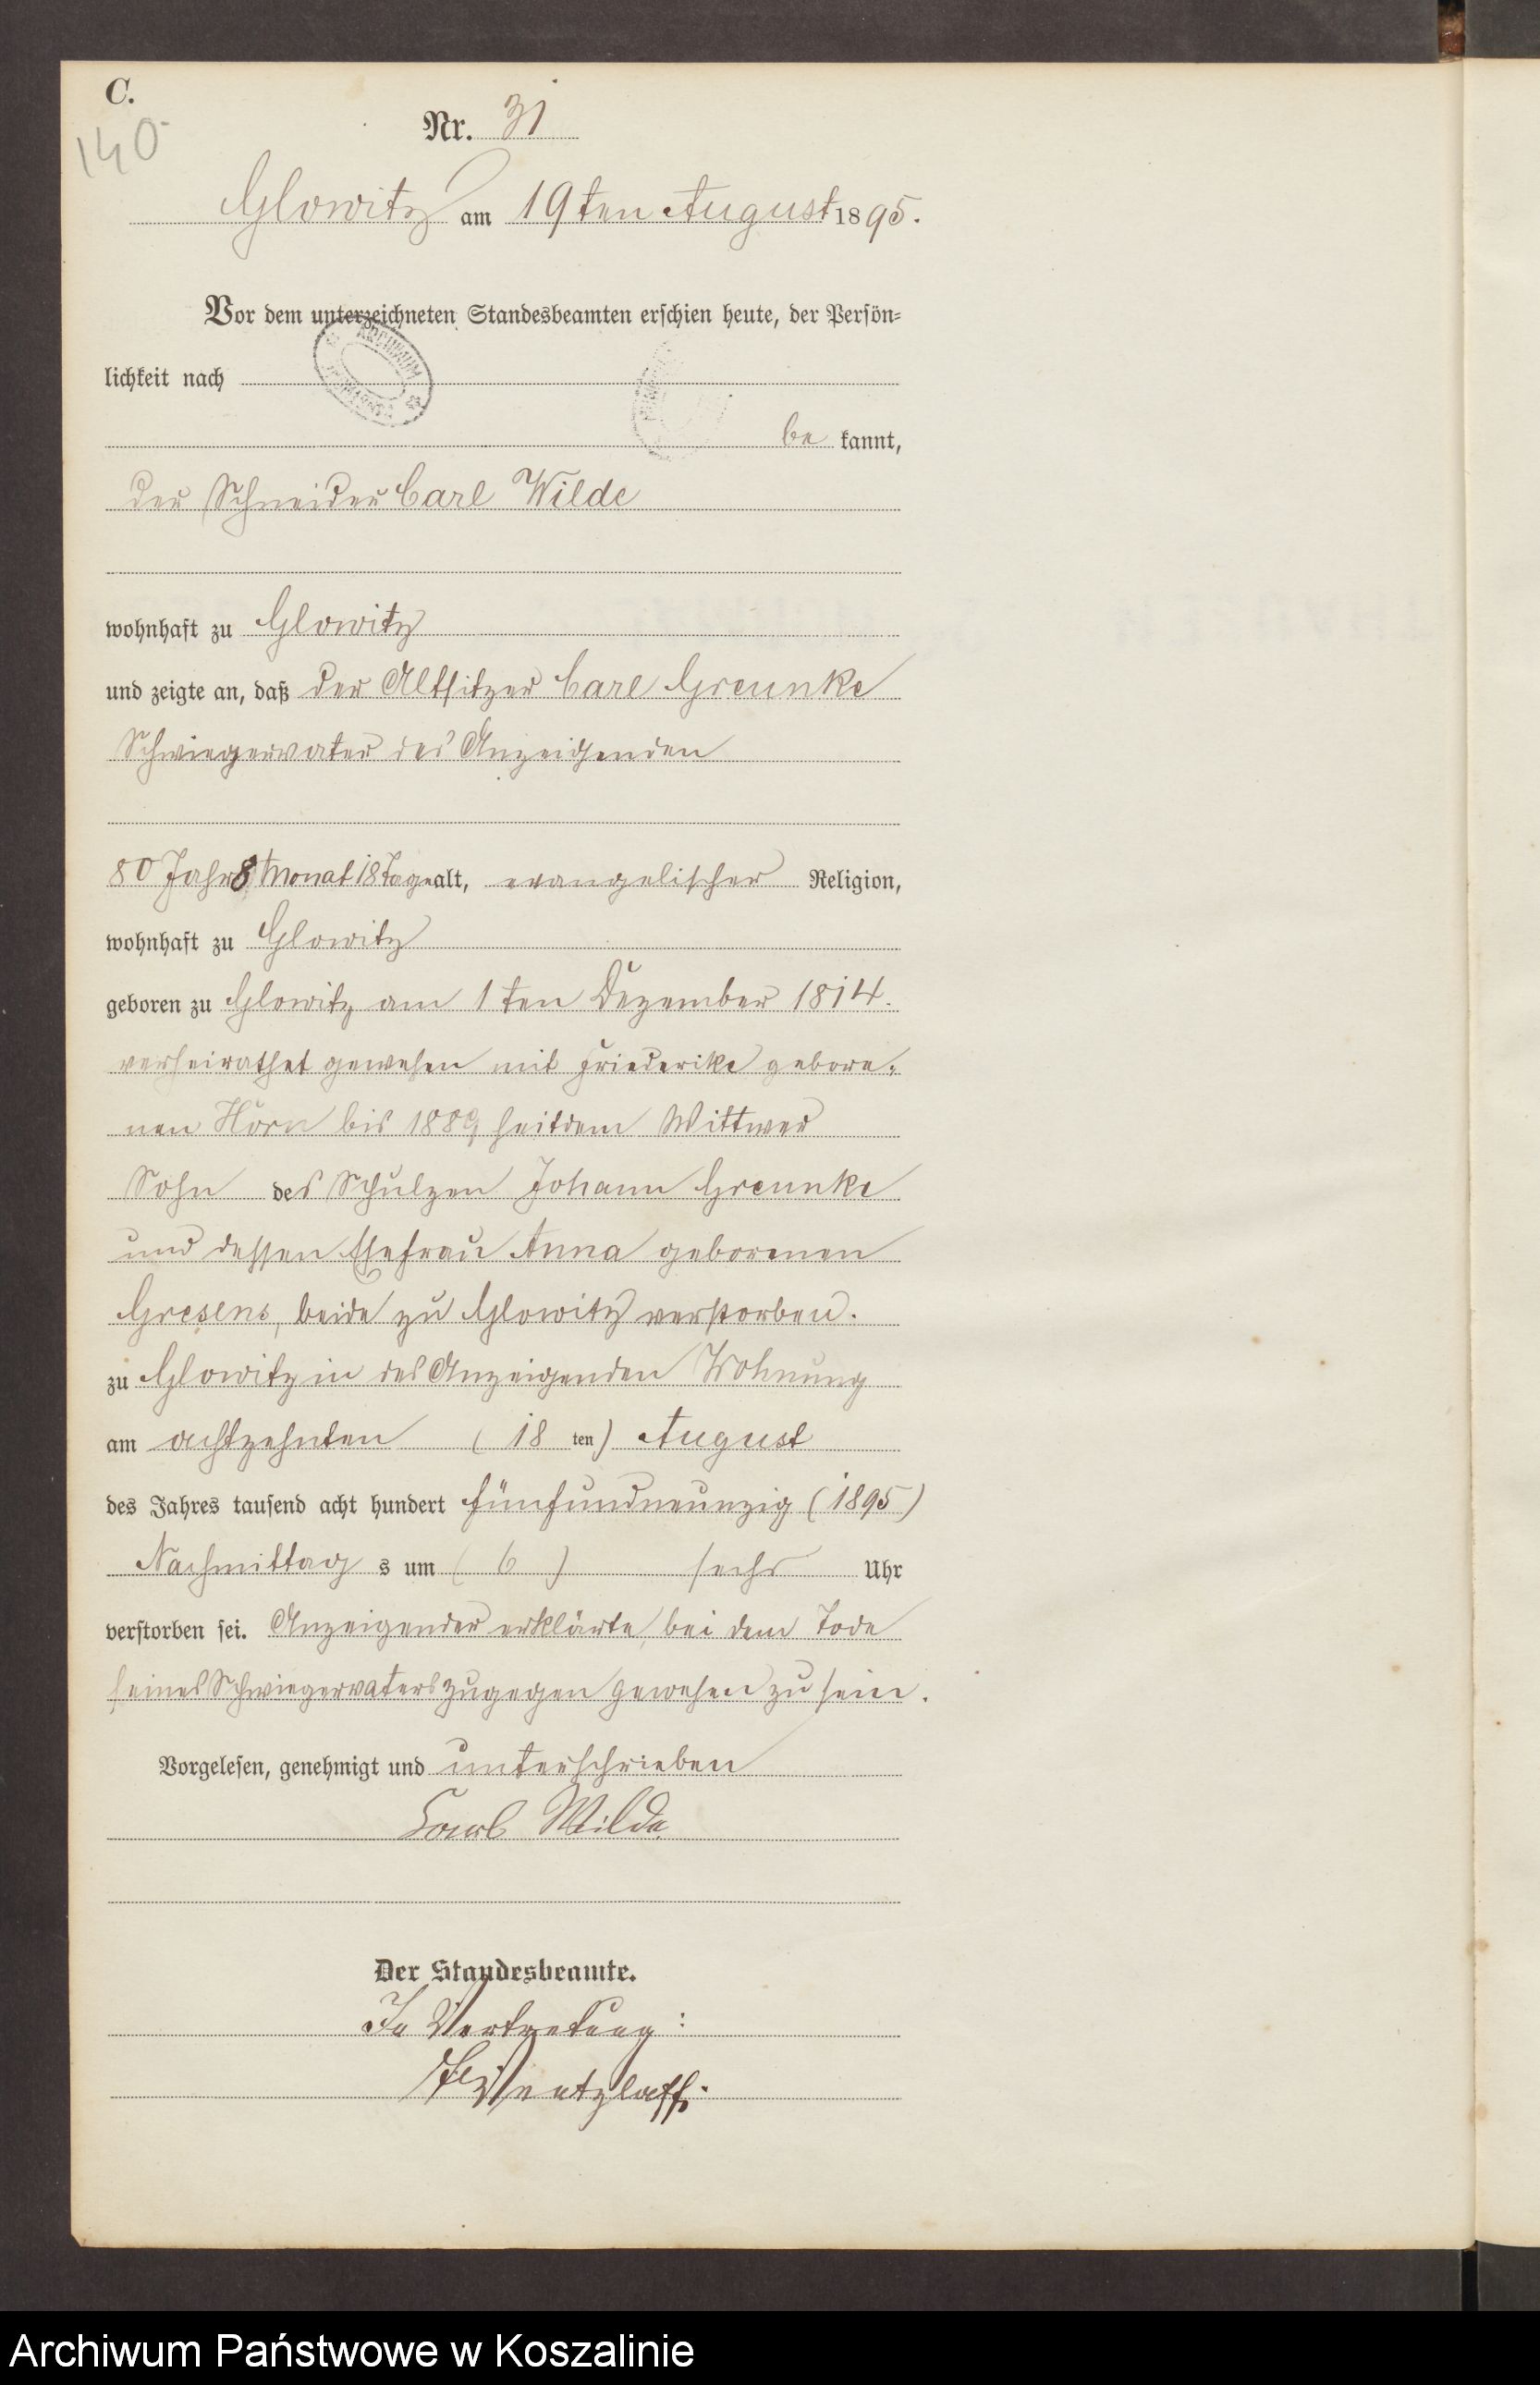 C.
140
Nr. 31
Glowitz am 19ten August 1895.
Vor dem unterzeichneten Standesbeamten erschien heute, der Persön-
lichkeit nach
be kannt,
der Schneider Carl Wilde
wohnhaft zu Glowitz
und zeigte an, daß der Altsitzer Carl Greunke
Schwiegervater des Anzeigenden
80 Jahr 8 Monat 18 Tage alt, evangelischer Religion,
wohnhaft zu Glowitz
geboren zu Glowitz am 1ten Dezember 1814.
verheirathet gewesen mit Friederike gebore-
nen Horn bis 1889, seitdem Wittwer
Sohn des Schulzen Johann Greunke
und dessen Ehefrau Anna geborenen
Gresens, beide zu Glowitz verstorben.
zu Glowitz in des Anzeigenden Wohnung
am achtzehnten (18 ten) August
des Jahres tausend acht hundert fünfundneunzig (1895)
Nachmittag s um (6) sechs Uhr
verstorben sei. Anzeigender erklärte, bei dem Tode
seines Schwiegervaters zugegen gewesen zu sein.
Vorgelesen, genehmigt und unterschrieben
Carl Wilde
Der Standesbeamte.
In Vertretung:
Wentzlaff.
Archiwum Państwowe w Koszalinie